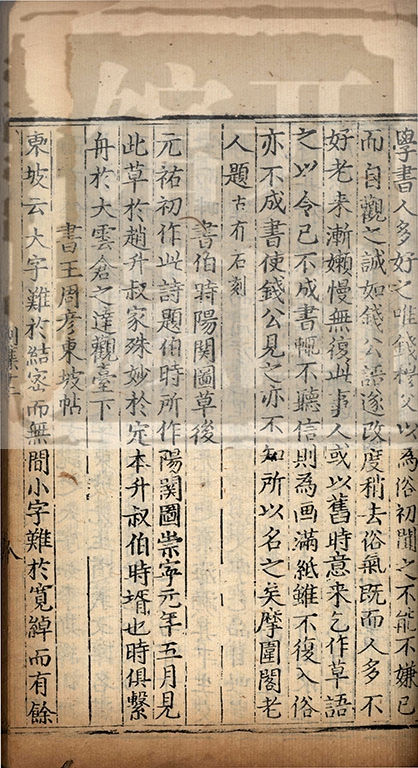 學書人多好之唯錢穆父以為俗初聞之不能不嫌已
而自觀之誠如錢公語遂改度稍去俗氣既而人多不
好老来漸嬾慢無復此事人或以舊時意来乞作草語
之以今已不成書輒不聽信則為画滿紙雖不復入俗
亦不成書使錢公見之亦不知所以名之矣摩圍閣老
人題古有石刻
書伯時陽関圖草後
元祐初作此詩題伯時所作陽関圖崇寧元年五月見
此草於趙升叔家殊妙於定本升叔伯時壻也時俱繫
舟於大雲倉之達觀臺下
書王周彦東坡帖
東坡云大字難於結宻而無間小字難於寛綽而有餘
別集十二
八